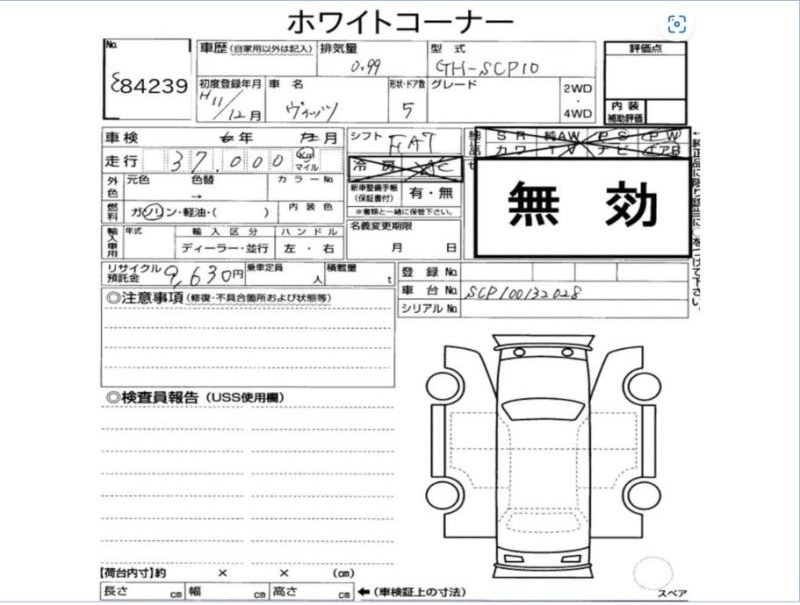 ホワイトコーナー
No.
84239
車歴 (自家用以外は記入)
排気量
0.99
型 式
GH-SCP10
評価点
初度登録年月
H11/12月
車 名
ヴィッツ
形状・ドア数
5
グレード
2WD
・
4WD
内 装
補助評価
車検 年 月
シフト FAT
純正品
SR 純AW PS PW
カワ TV ナビ エアB
走行 37,000 Km
マイル
冷 房 AC
外色
元色 色替 カラーNo.
→
新車整備手帳
(保証書付)
有・無
※書類と一緒に保管下さい。
燃料
ガソリン・軽油・( )
内 装 色
無 効
輸入車用
年式
輸 入 区 分
ハ ン ド ル
ディーラー・並行
左 ・ 右
名義変更期限
月 日
リサイクル
預託金
9,630円
乗車定員
人
積載量
t
登 録 No.
車 台 No. SCP100132028
シリアル No.
◎注意事項 (修復・不具合箇所および状態等)
◎検査員報告 (USS使用欄)
【荷台内寸】約 × × (cm)
長さ cm 幅 cm 高さ cm ←(車検証上の寸法)
スペア